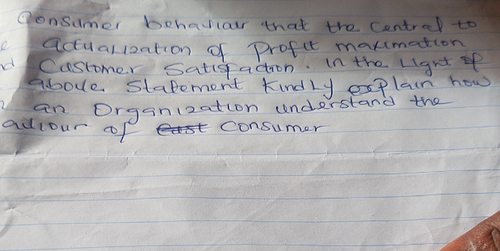 Consumer behaviour that the Central to
e actualization of Profit maximation
nd Customer Satisfaction. in the Light of
above Statement Kindly explain how
an Organization understand the
aviour of east consumer